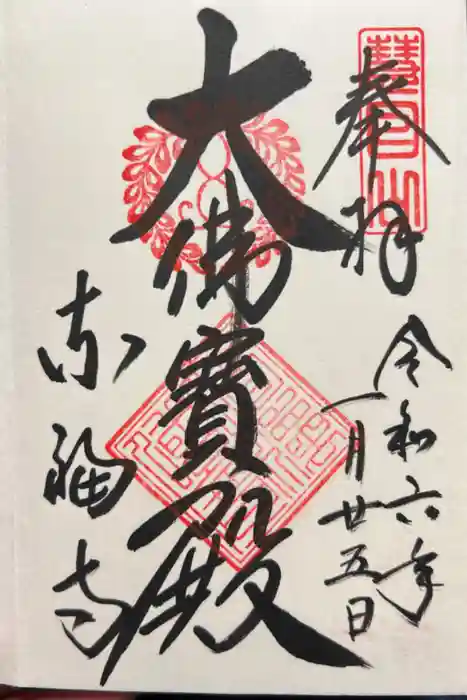 奉拝
慧日山
令和六年
一月廿五日
大佛寶殿
東福寺